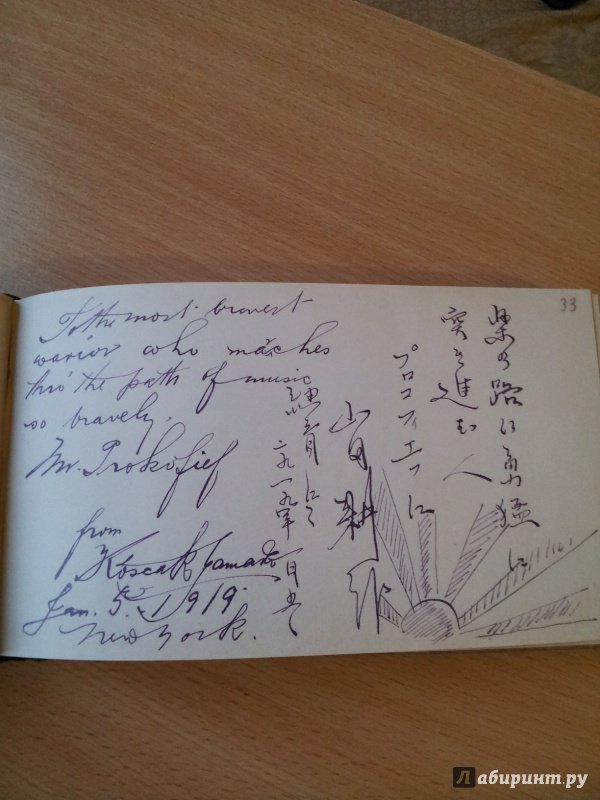 To the most bravest
warior who maches
thro' the path of music
so bravely.
Mr. Prokofief
from
Kósçak Yamada
Jan. 5. 1919.
New York.
33
楽の路に勇猛に
突き進む人
プロコフィエフに
山田耕作
一九一九年一月五日
Лабиринт.ру